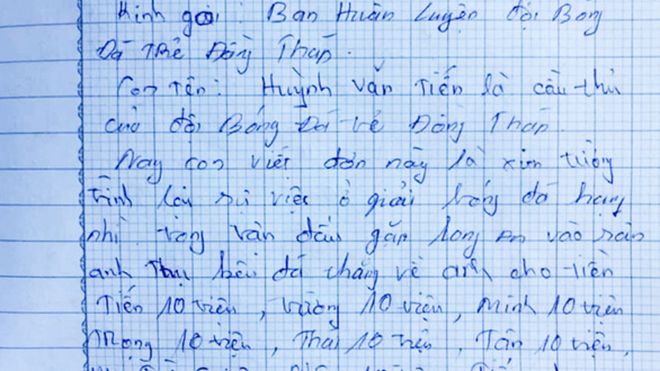 Kính gởi: Ban Huấn Luyện đội Bóng
Đá Trẻ Đồng Tháp.
Con Tên: Huỳnh Văn Tiến là cầu thủ
của đội Bóng Đá vẻ Đồng Tháp.
Nay con viết đơn này là xin tường
trình lại sự việc ở giải bóng đá hạng
nhì trong trận đấu gặp long An vào sân
anh Thụ bểu đá thắng về anh cho tiền
Tiến 10 triện, vương 10 triện, Minh 10 triện
Trọng 10 triện, Thái 10 triện, Tân 10 triện,